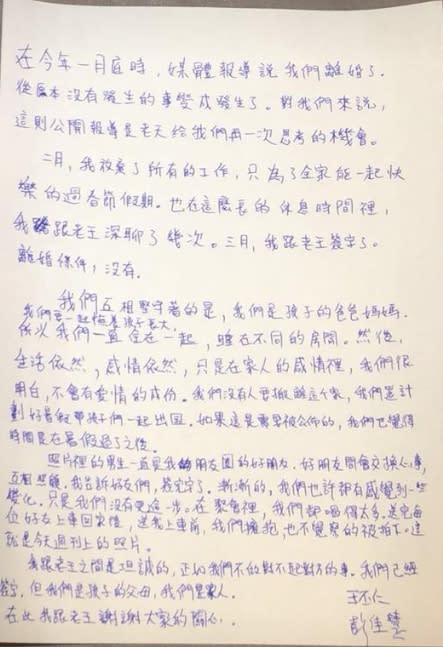 在今年一月底時，媒體報導說我們離婚了.
從原本沒有發生的事變成發生了。對我們來說，
這則公開報導是老天給我們再一次思考的機會。
二月，我放棄了所有的工作，只為了全家能一起快
樂的過春節假期。也在這麼長的休息時間裡，
我跟老王深聊了幾次。三月，我跟老王簽字了。
離婚條件，沒有.
我們互相堅守著的是，我們是孩子的爸爸媽媽.
我們要一起陪著孩子長大,
所以我們一直住在一起，睡在不同的房間。然後,
生活依然，感情依然，只是在家人的感情裡，我們很
明白，不會有愛情的成份。我們沒有人要搬離這個家，我們還計
劃好暑假帶孩子們一起出國。如果這是需要被公佈的，我們也覺得
時間是在暑假過了之後。
照片裡的男生一直是我朋友圈的好朋友.好朋友間會交換心事,
互相照顧.我告訴好友們，簽完字了.漸漸的，我們也許都有感覺到一些
變化.只是我們沒有更進一步。在聚會裡，我們都喝得太多.送完每
位好友上車回家後，送我上車前，我們擁抱，也不覺察的被拍下。這
就是今天週刊上的照片。
我跟老王之間是坦誠的，正如我們不做對不起對方的事.我們已經
簽字，但我們是孩子的父母，我們是家人。
在此我跟老王謝謝大家的關心..
彭佳慧